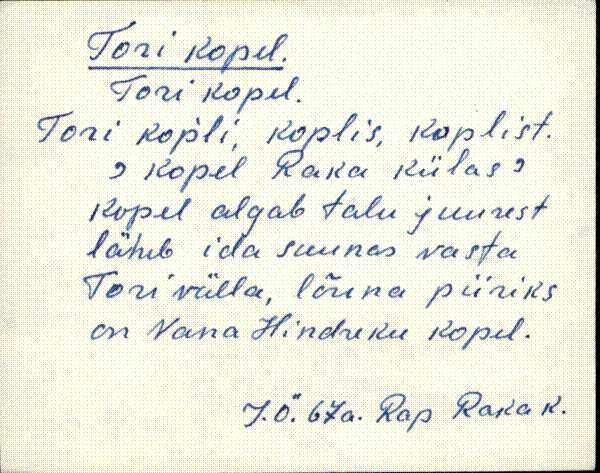 Tori kopel.
Tori kopel.
Tori kop̀li, koplis, koplist.
, kopel Raka külas ,
kopel algab talu juurest
läheb ida suunas vasta
Tori välla, lõuna piiriks
on Vana Hindreku kopel.
J.Ö. 67a. Rap Raka k.